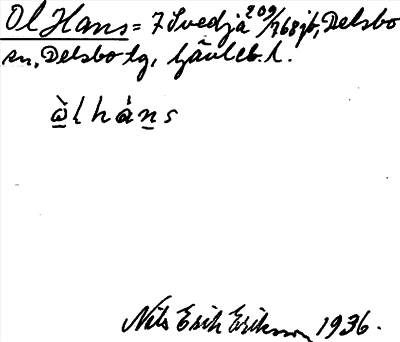 Ol Hans = 7 Svedja 209/268 jb, Delsbo
sn, Delsbo tg, Gävleb. l.
ò̱lhàṉs
Nils Erik Erikson 1936.